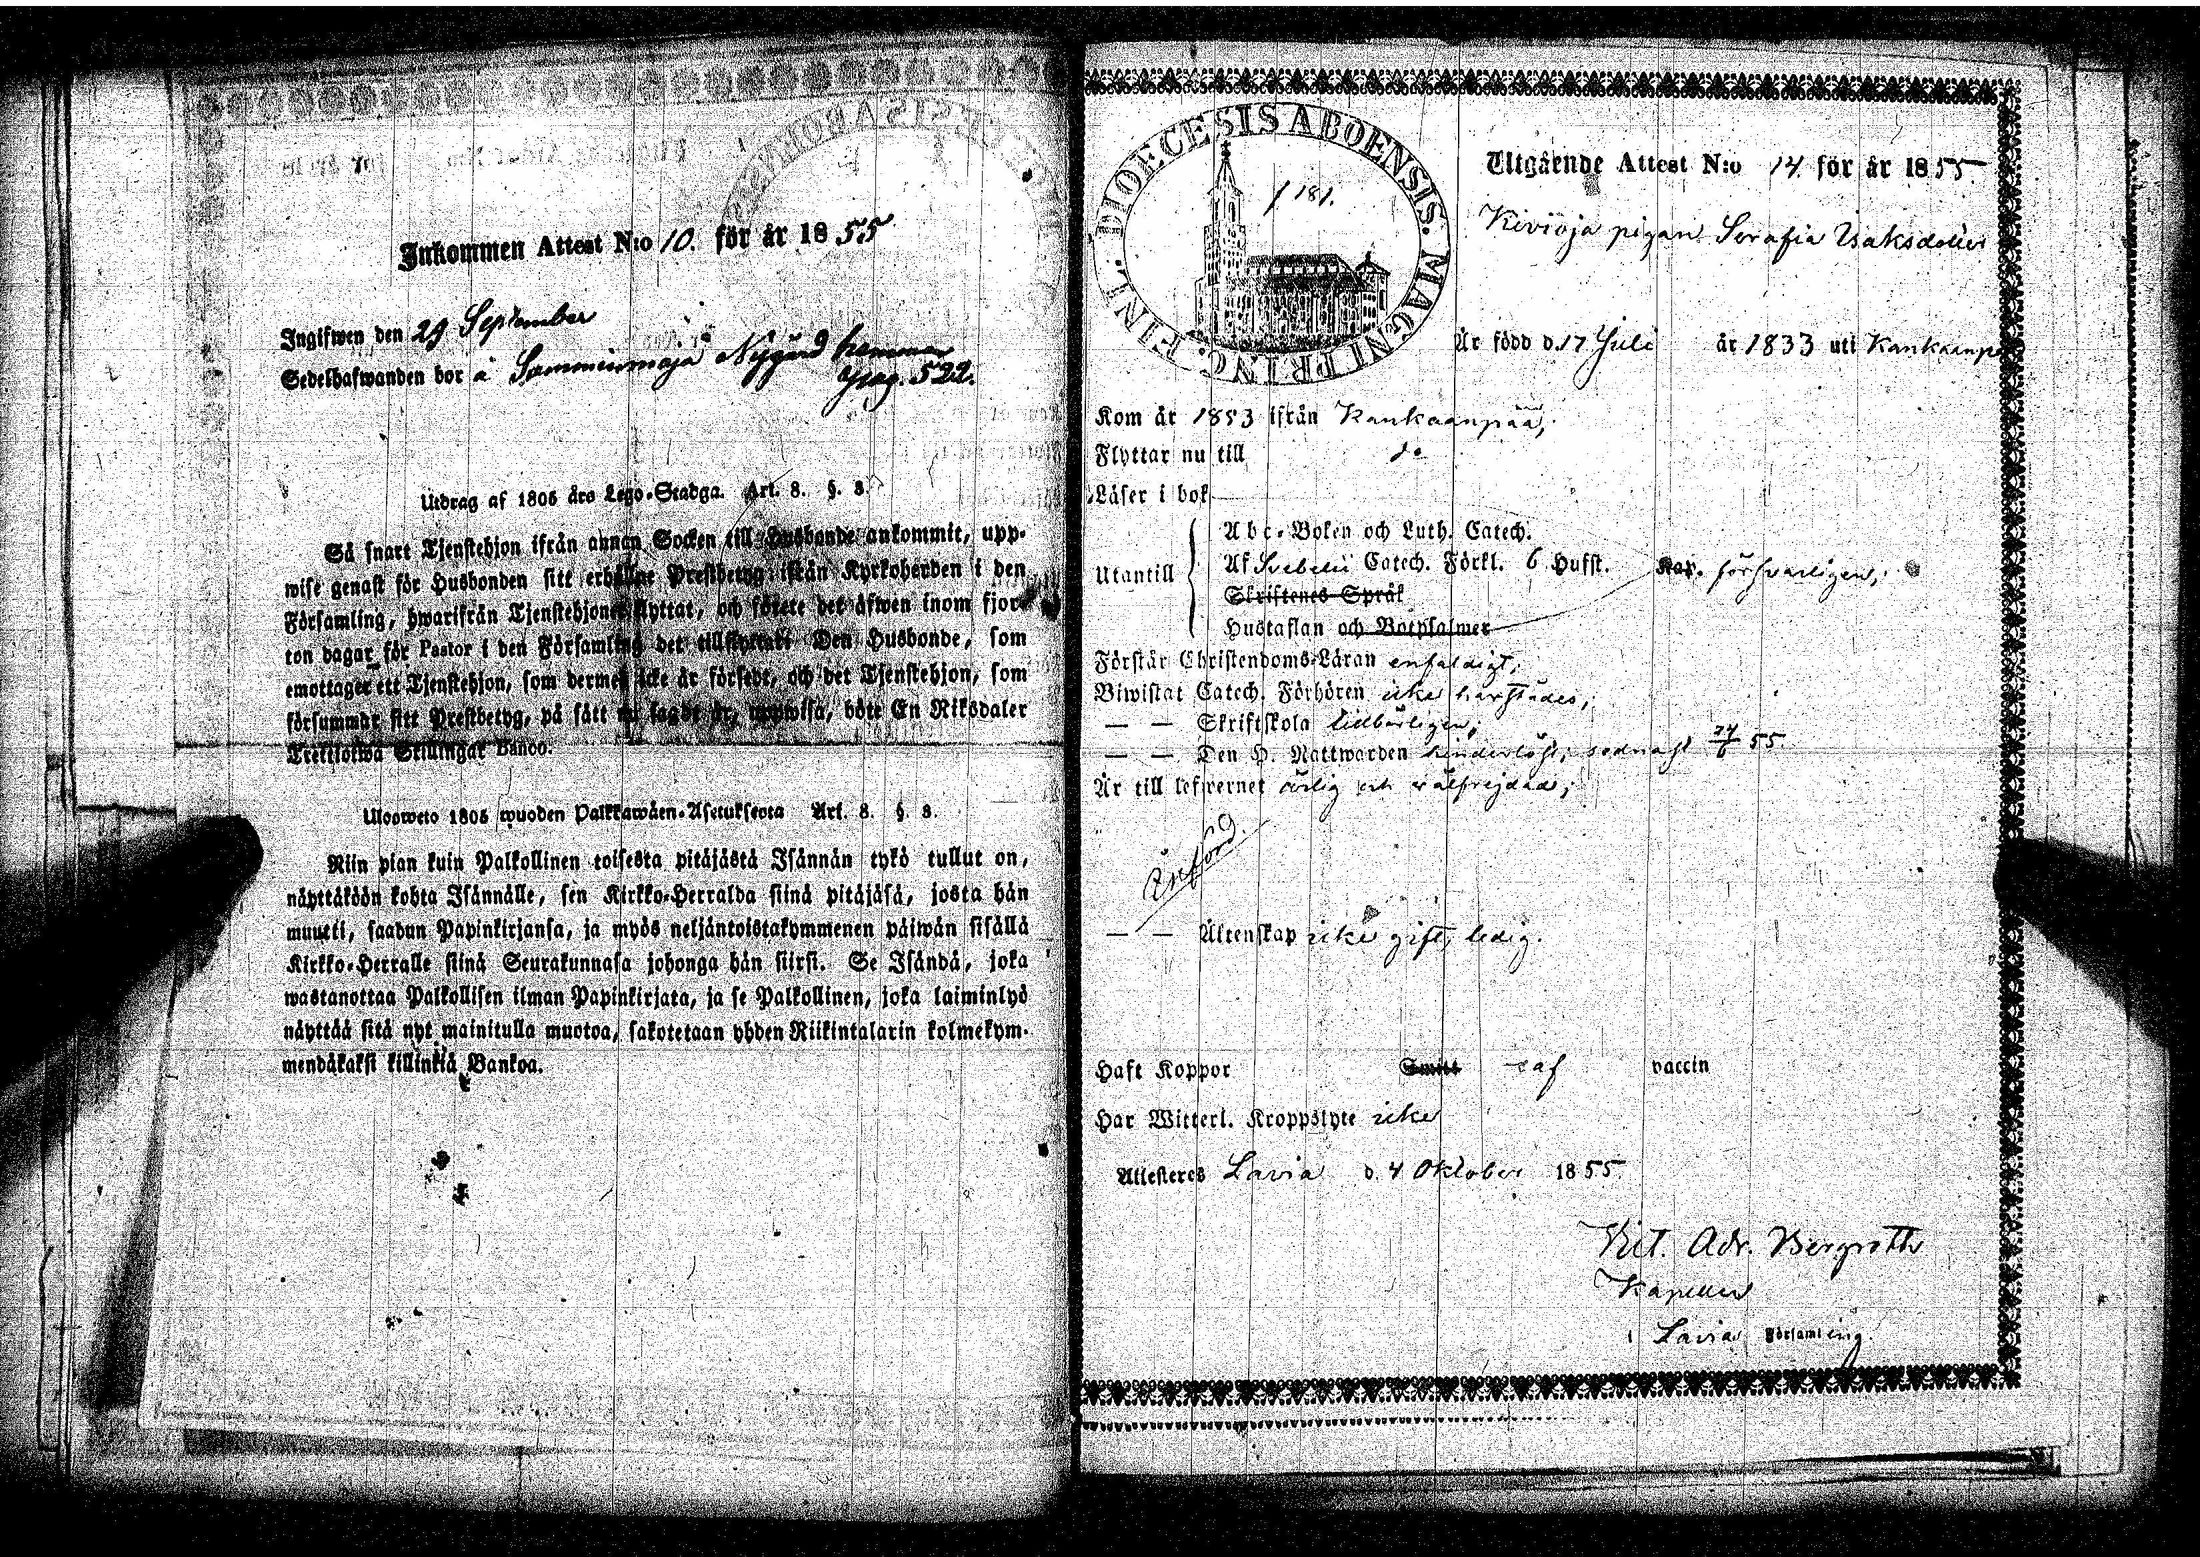 Inkommen Attest N:o 10. för år 1855
Ingifwen den 29 September
Sedelhafwanden bor å Nygård hemman
pag. 522.
Utdrag af 1805 års Lego-Stadga. Art. 8. §. 3.
Så snart Tjenstehjon ifrån annan Socken till Husbonde ankommit, upp-
wise genast för Husbonden sitt erhållne Prestbetyg ifrån Kyrkoherden i den
Församling, hwarifrån Tjenstehjonet flyttat, och förete det äfwen inom fjor-
ton dagar för Pastor i den Församling det tillflyttat. Den Husbonde, som
emottager ett Tjenstehjon, som dermed icke är försedt, och det Tjenstehjon, som
försummar sitt Prestbetyg, på sätt nu sagdt är, uppwisa, böte En Riksdaler
Trettiotwå Skillingar Banco.
Ulosweto 1805 wuoden Palkkawäen-Asetuksesta Art. 8. §. 3.
Niin pian kuin Palkollinen toisesta pitäjästä Isännän tykö tullut on,
näyttäköön kohta Isännälle, sen Kirkko-Herralda siinä pitäjäsä, josta hän
muutti, saadun Papinkirjansa, ja myös neljäntoistakymmenen päiwän sisällä
Kirkko-Herralle siinä Seurakunnasa johonga hän siirsi. Se Isändä, joka
wastanottaa Palkollisen ilman Papinkirjata, ja se Palkollinen, joka laiminlyö
näyttää sitä nyt mainitulla muotoa, sakotetaan yhden Riikintalarin kolmekym-
mendäkaksi killinkiä Bankoa.
DIOECESIS ABOENSIS. MAGNI PRINC. FINL.
p 181.
Utgående Attest N:o 14 för år 1855
Kivioja pigan Serafia Isaksdotter
Är född d. 17 Juli år 1833 uti Kankaanpää
Kom år 1853 ifrån Kankaanpää,
Flyttar nu till do
Läser i bok
Utantill
Abc-Boken och Luth. Catech.
Af Svebelii Catech. Förkl. 6 Hufst. Kap. försvarligen,
Skriftenes Språk
Hustaflan och Botpsalmer
Förstår Christendoms-Läran enfaldigt,
Biwistat Catech. Förhören icke härstädes,
— — Skriftskola tillbörligen,
— — Den H. Nattwarden hinderlöst, sednast 24/6 55.
Är till lefwernet ärlig och välfrejdad,
Införd.
— — Äktenskap icke gift, ledig.
Haft Koppor Smitt af vaccin
Har Witterl. Kroppslyte icke
Attesteras Lavia d. 4 Oktober 1855.
Vict. Adr. Bergroth
Kapellan
i Lavia Församling.